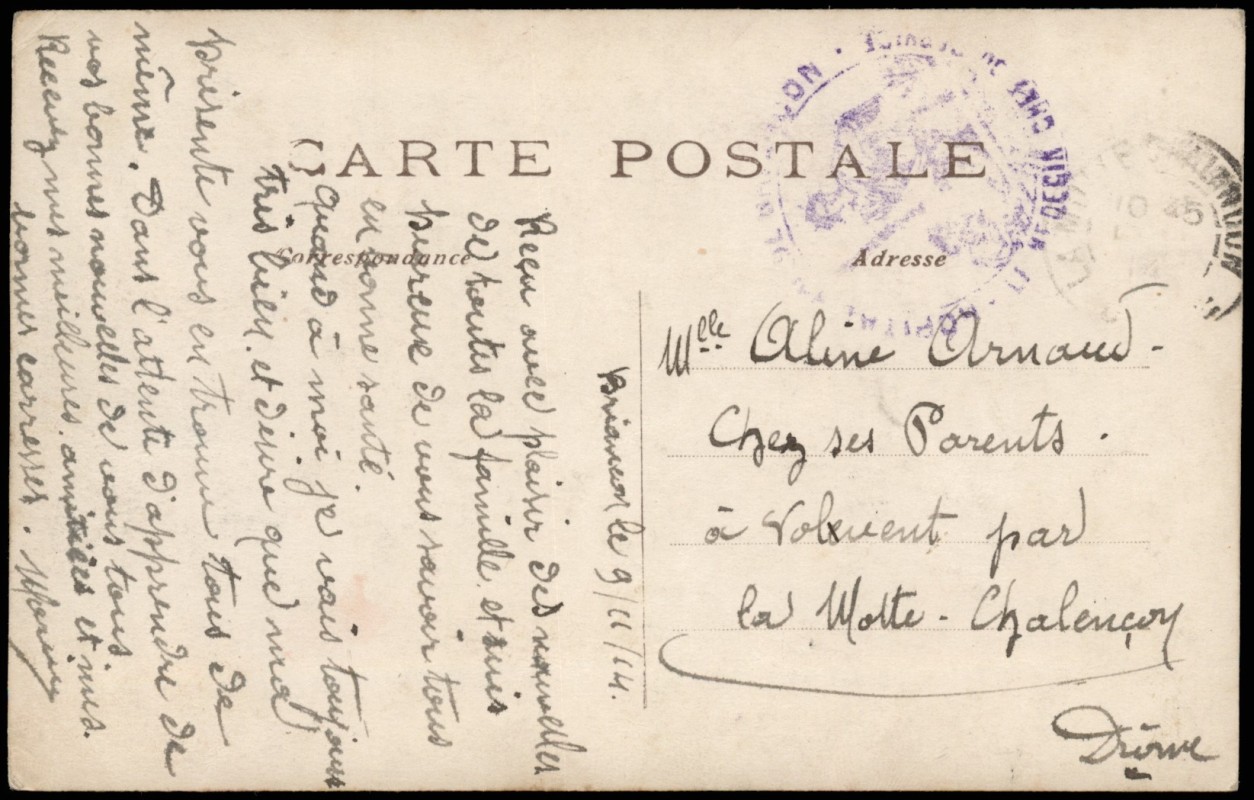 CARTE POSTALE
Correspondance
Adresse
Briancon le 9/11/14.
Reçu avec plaisir des nouvelles
de toutes la famille. et suis
heureuse de vous savoir tous
en bonne santé.
quand à moi je vais toujours
très bien. et désire que ma
présente vous en trouve tous de
même. Dans l'attente d'apprendre de
vos bonnes nouvelles de vous tous
Recevez mes meilleures. amitiées et mes.
bonnes caresses.
Mlle Aline Arnaud-
Chez ses Parents.
à Volvent par
la Motte-Chalençon
Drôme
MEDECIN CHEF
10 45